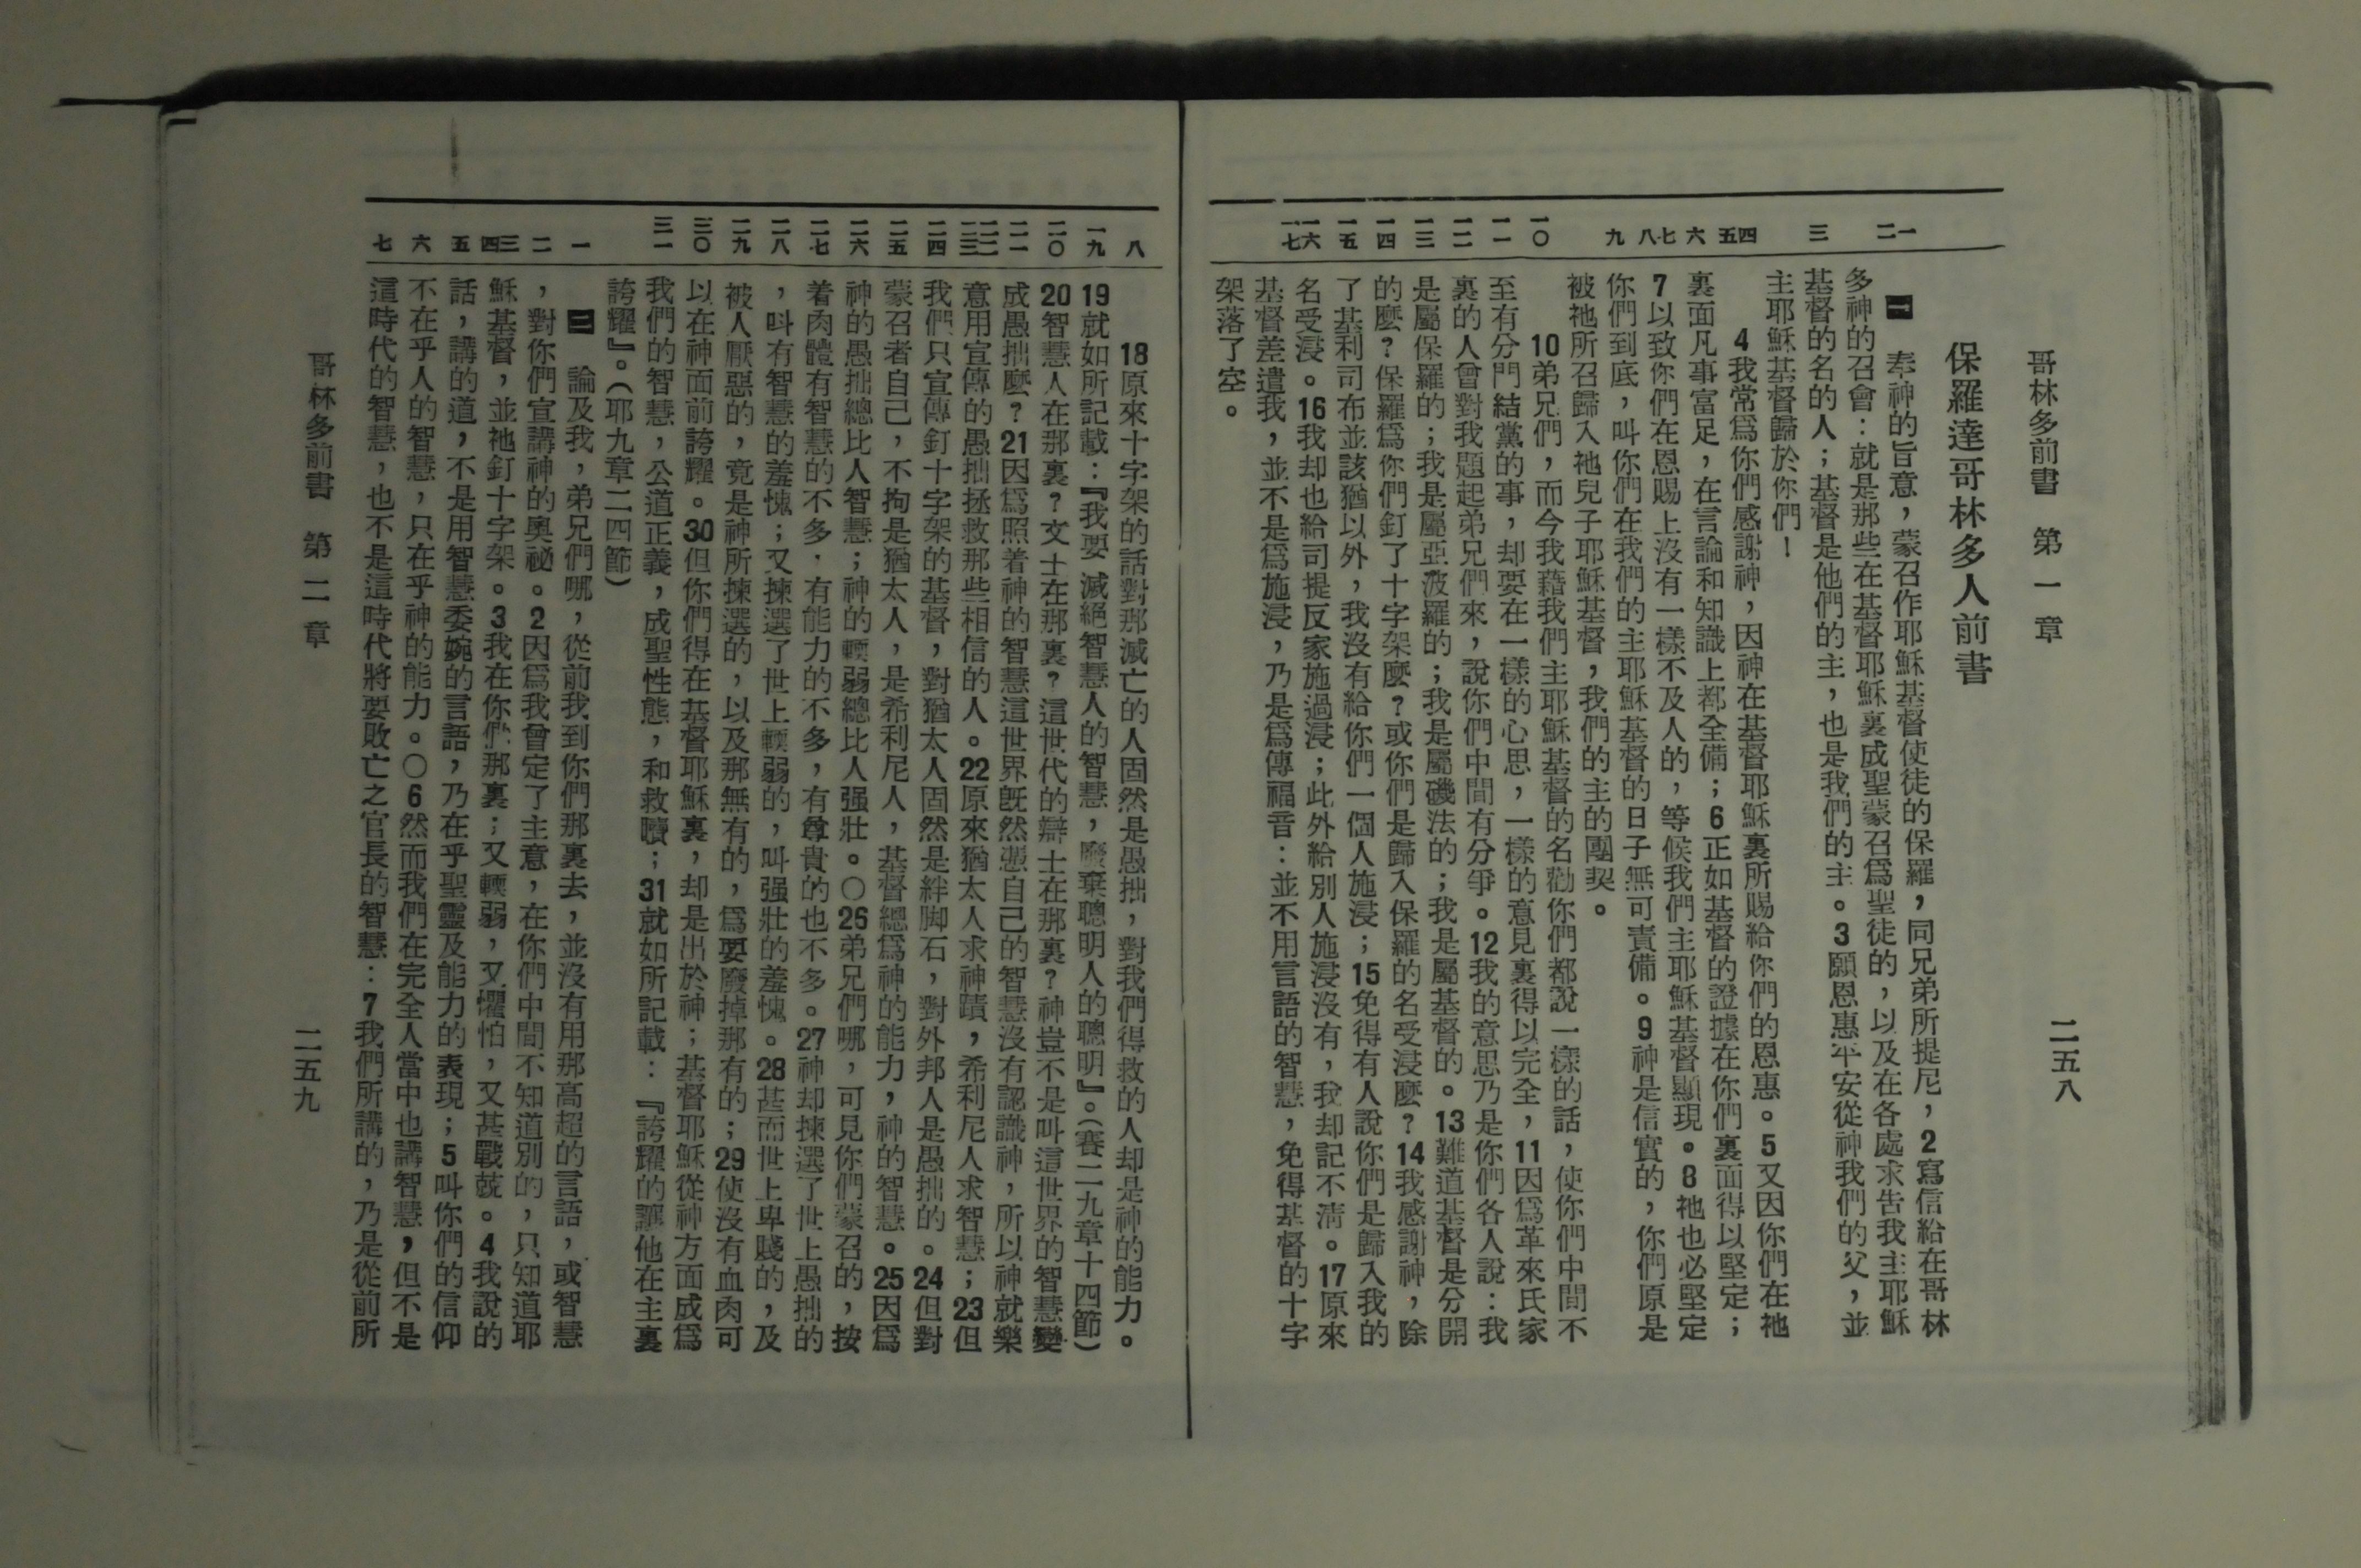 哥林多前書　第一章　二五八
保羅達哥林多人前書
一二　三　四五　六　七八　九　一〇　一一　一二　一三　一四　一五　一六　一七
一　奉神的旨意，蒙召作耶穌基督使徒的保羅，同兄弟所提尼，2寫信給在哥林
多神的召會：就是那些在基督耶穌裏成聖蒙召爲聖徒的，以及在各處求告我主耶穌
基督的名的人；基督是他們的主，也是我們的主。3願恩惠平安從神我們的父，並
主耶穌基督歸於你們！
4我常爲你們感謝神，因神在基督耶穌裏所賜給你們的恩惠。5又因你們在祂
裏面凡事富足，在言論和知識上都全備；6正如基督的證據在你們裏面得以堅定；
7以致你們在恩賜上沒有一樣不及人的，等候我們主耶穌基督顯現。8祂也必堅定
你們到底，叫你們在我們的主耶穌基督的日子無可責備。9神是信實的，你們原是
被祂所召歸入祂兒子耶穌基督，我們的主的團契。
10弟兄們，而今我藉我們主耶穌基督的名勸你們都說一樣的話，使你們中間不
至有分門結黨的事，却要在一樣的心思，一樣的意見裏得以完全，11因爲革來氏家
裏的人曾對我題起弟兄們來，說你們中間有分爭。12我的意思乃是你們各人說：我
是屬保羅的；我是屬亞波羅的；我是屬磯法的；我是屬基督的。13難道基督是分開
的麼？保羅爲你們釘了十字架麼？或你們是歸入保羅的名受浸麼？14我感謝神，除
了基利司布並該猶以外，我沒有給你們一個人施浸；15免得有人說你們是歸入我的
名受浸。16我却也給司提反家施過浸；此外給別人施浸沒有，我却記不清。17原來
基督差遣我，並不是爲施浸，乃是爲傳福音：並不用言語的智慧，免得基督的十字
架落了空。
八　一九　二〇　二一　二二　二三　二四　二五　二六　二七　二八　二九　三〇　三一　一　二　三四　五　六　七
18原來十字架的話對那滅亡的人固然是愚拙，對我們得救的人却是神的能力。
19就如所記載：『我要滅絕智慧人的智慧，廢棄聰明人的聰明』。（賽二九章十四節）
20智慧人在那裏？文士在那裏？這世代的辯士在那裏？神豈不是叫這世界的智慧變
成愚拙麼？21因爲照着神的智慧這世界旣然憑自己的智慧沒有認識神，所以神就樂
意用宣傳的愚拙拯救那些相信的人。22原來猶太人求神蹟，希利尼人求智慧；23但
我們只宣傳釘十字架的基督，對猶太人固然是絆脚石，對外邦人是愚拙的。24但對
蒙召者自己，不拘是猶太人，是希利尼人，基督總爲神的能力，神的智慧。25因爲
神的愚拙總比人智慧；神的輭弱總比人强壯。〇26弟兄們哪，可見你們蒙召的，按
着肉體有智慧的不多．有能力的不多，有尊貴的也不多。27神却揀選了世上愚拙的
，叫有智慧的羞愧；又揀選了世上輭弱的，叫强壯的羞愧。28甚而世上卑賤的，及
被人厭惡的，竟是神所揀選的，以及那無有的，爲要廢掉那有的；29使沒有血肉可
以在神面前誇耀。30但你們得在基督耶穌裏，却是出於神；基督耶穌從神方面成爲
我們的智慧，公道正義，成聖性態，和救贖；31就如所記載：『誇耀的讓他在主裏
誇耀』。（耶九章二四節）
二　論及我，弟兄們哪，從前我到你們那裏去，並沒有用那高超的言語，或智慧
，對你們宣講神的奧祕。2因爲我曾定了主意，在你們中間不知道別的，只知道耶
穌基督，並祂釘十字架。3我在你們那裏；又輭弱，又懼怕，又甚戰兢。4我說的
話，講的道，不是用智慧委婉的言語，乃在乎聖靈及能力的表現；5叫你們的信仰
不在乎人的智慧，只在乎神的能力。〇6然而我們在完全人當中也講智慧，但不是
這時代的智慧，也不是這時代將要敗亡之官長的智慧：7我們所講的，乃是從前所
哥林多前書　第二章　二五九